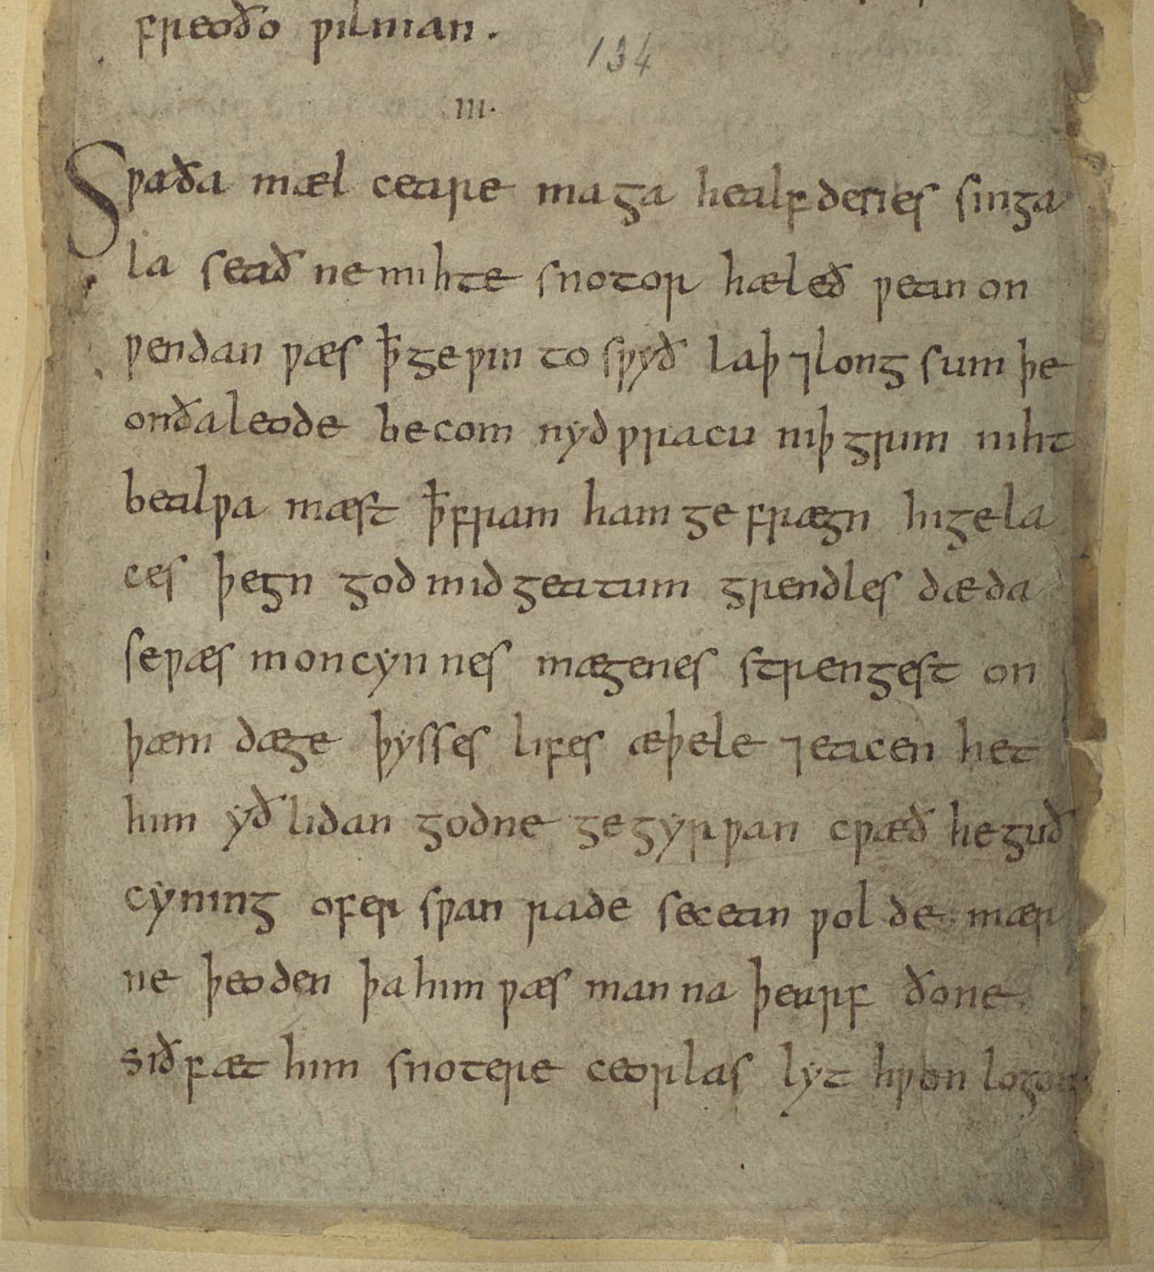 freoðo ƿilnian.
134
III.
Sƿaða mæl ceare maga healfdenes singa
la seað ne mihte snotor hæleð ƿean on
ƿendan ƿæs ꝥ geƿin to sƿyð laþ ⁊ long sum þe
on ða leode becom nyd ƿracu niþ grim niht
bealƿa mæst ꝥ fram ham gefrægn higela
ces þegn god mid geatum grendles dæda
se ƿæs moncynnes mægenes strengest on
þæm dæge þysses lifes æþele ⁊ eacen het
him yð lidan godne gegyrƿan cƿæð he guð
cyning ofer sƿan rade secean ƿolde mær
ne þeoden þa him ƿæs manna þearf ðone
siðfæt him snotere ceorlas lyt hƿon logon